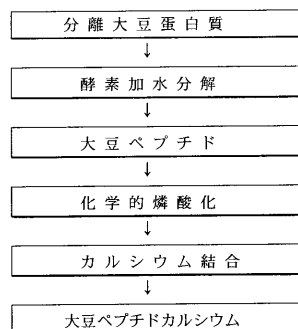 分離大豆蛋白質
↓
酵素加水分解
↓
大豆ペプチド
↓
化学的燐酸化
↓
カルシウム結合
↓
大豆ペプチドカルシウム